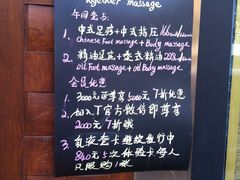 Together massage
午间套方:
1. 中式足疗+中式指压
Chinese Foot massage + Body massage
2. 精油足底+泰式精油
oil Foot massage + oil Body massage
会员优惠
1. 3000元可尊享5000元7折优惠
2. 加入丁官方微信即尊享
2000元7折
3. 乳液套卡继续进行中
840元5次体验卡每人
只限购1张